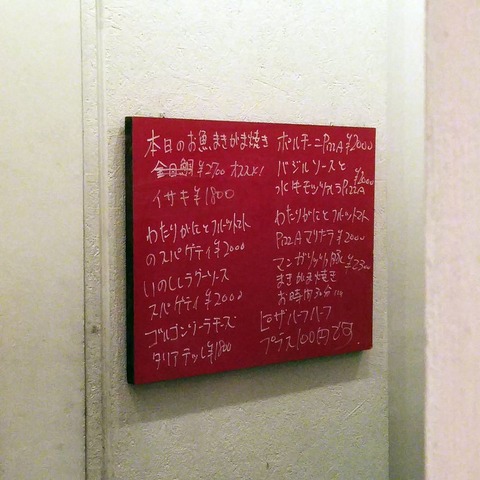 本日のお魚まきがま焼き
金目鯛 ¥2700 オススメ!
イサキ ¥1800
わたりがにとフルーツトマト
のスパゲティ ¥2000
いのししラグーソース
スパゲティ ¥2000
ゴルゴンゾーラチーズ
タリアテッレ ¥1800
ポルチーニPizzA ¥2000
バジルソースと
水牛モッツァレラPizzA ¥2000
わたりがにとフルーツトマト
PizzA マリナーラ ¥2000
マンガリッツァ豚 ¥2300
まきがま焼き
お時間30分
ピザハーフハーフ
プラス100円です。